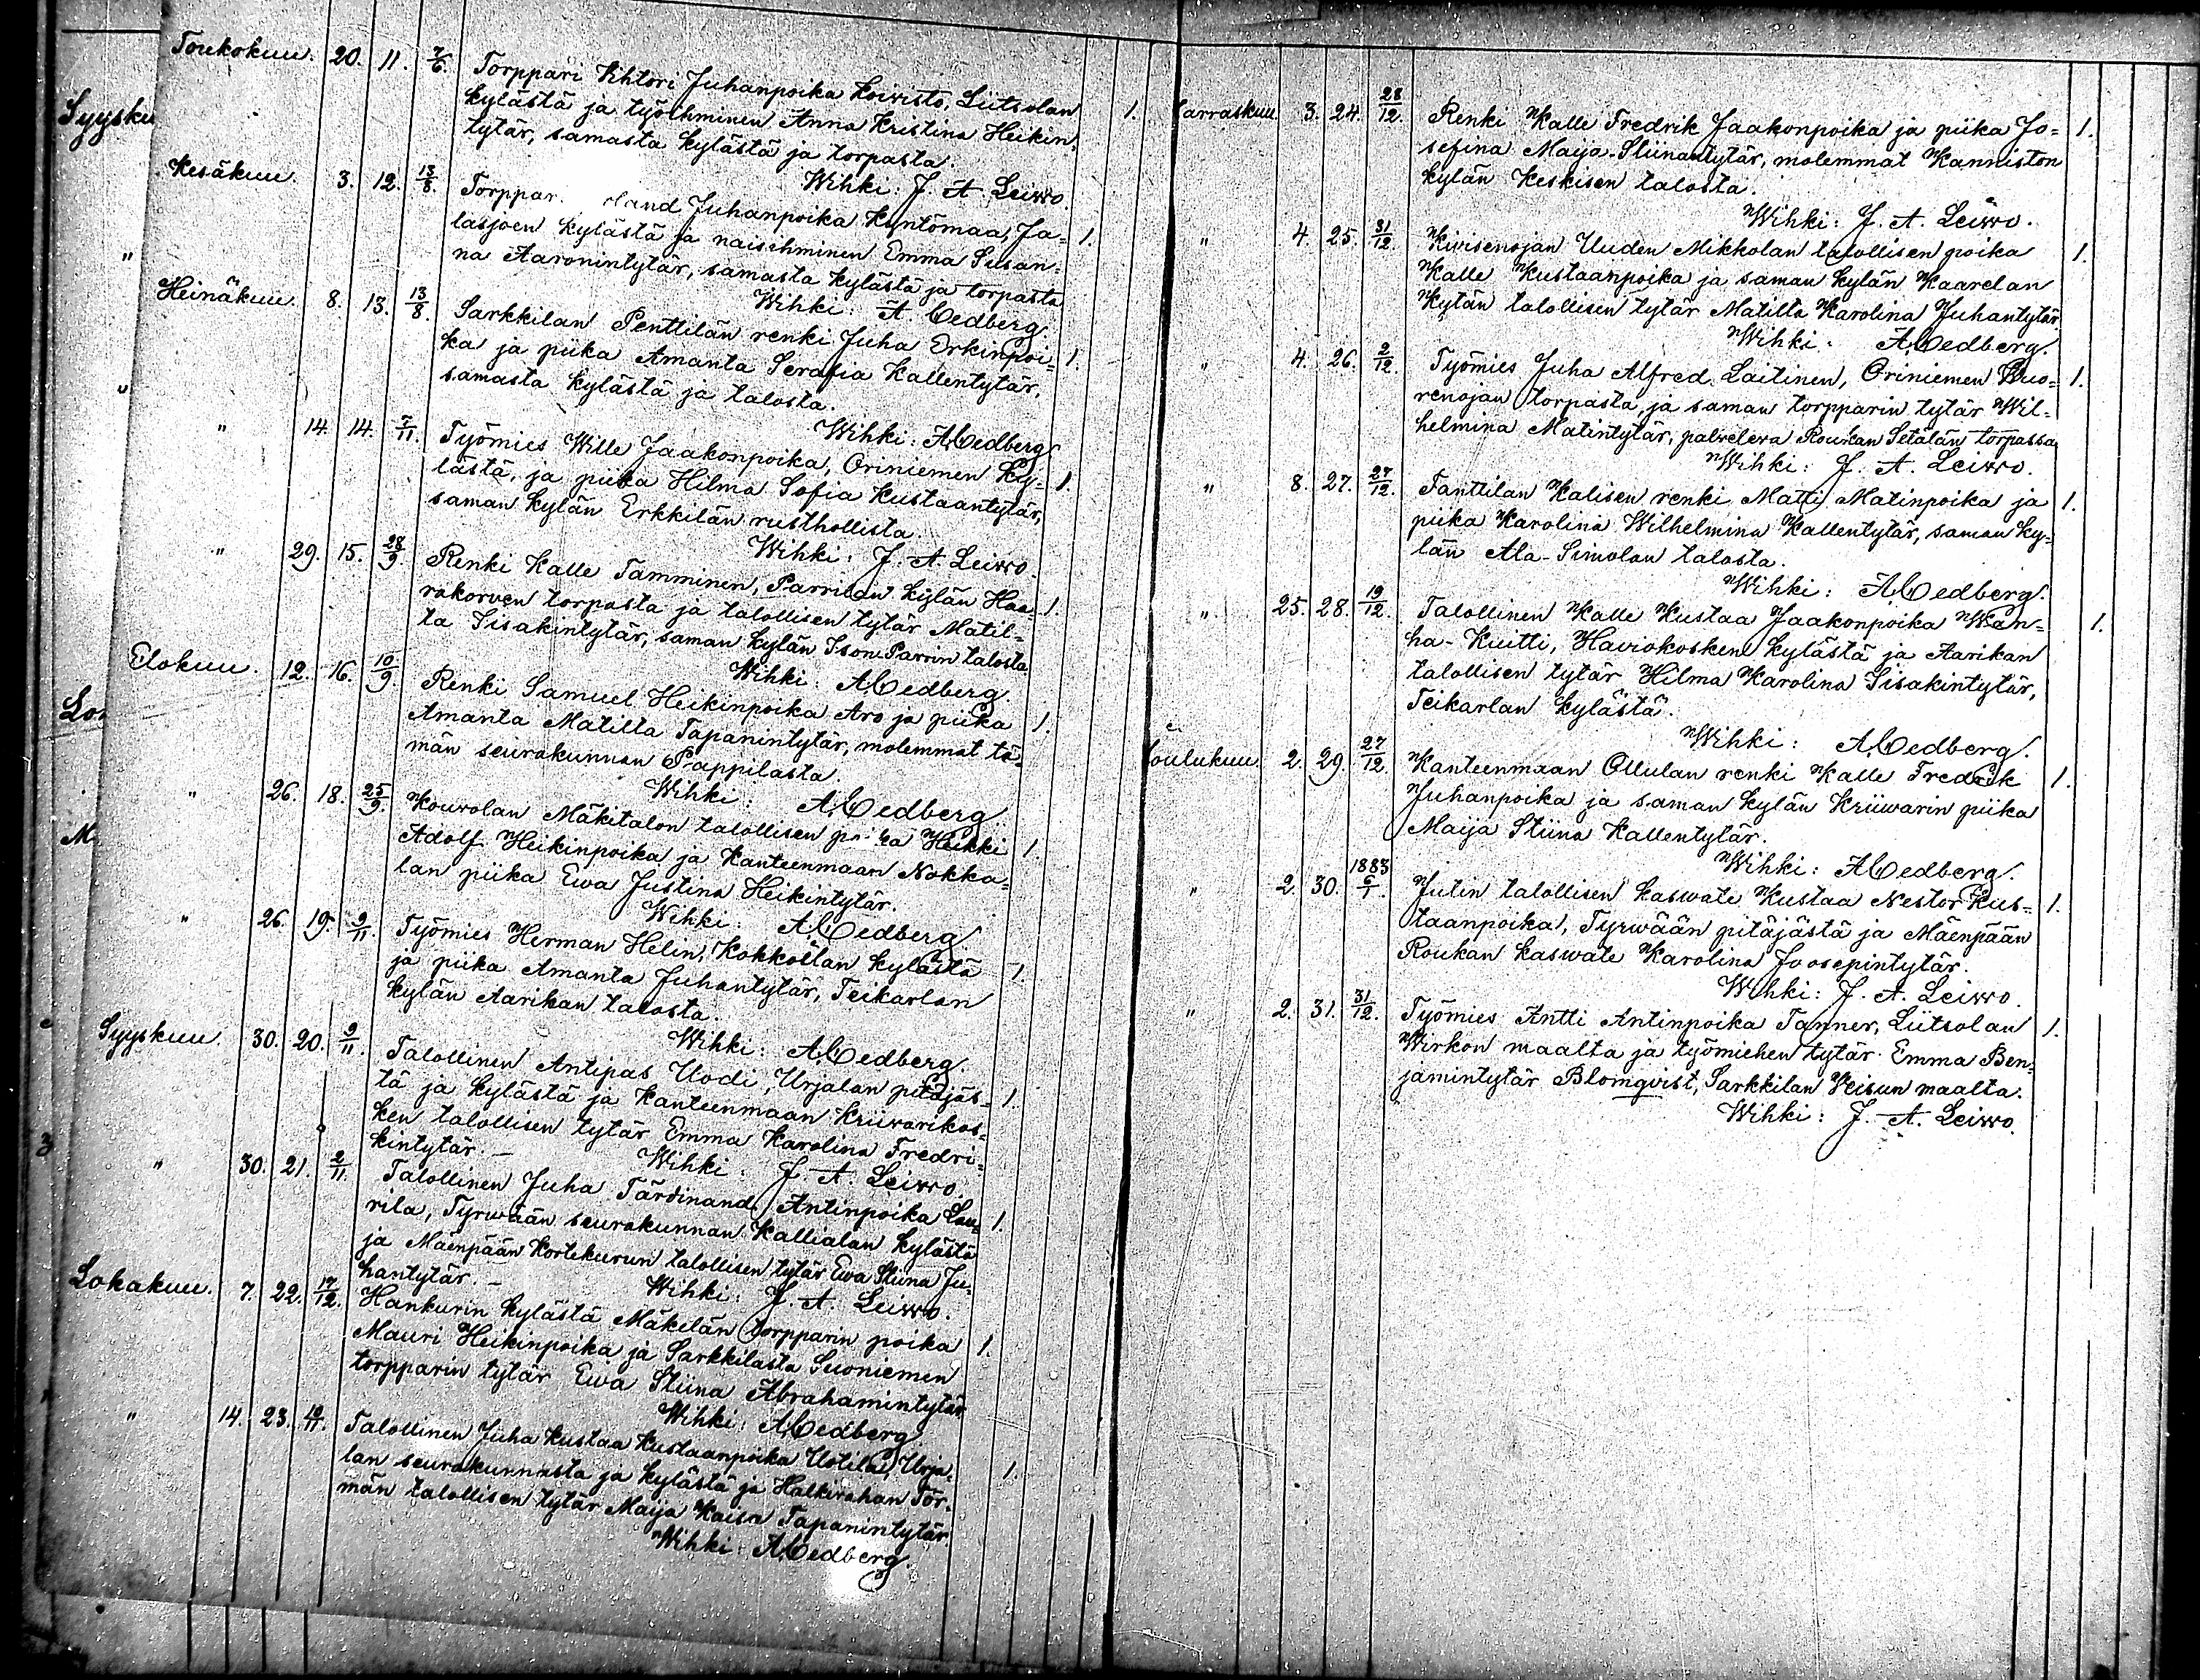 Toukokuu. 20. 11. 7/6. Torppari Vihtori Juhanpoika Koivisto, Liitsolan 1.
kylästä ja työihminen Anna Kristina Heikin-
tytär, samasta kylästä ja torpasta.
Wihki: J. A. Leivo.
Kesäkuu. 3. 12. 13/8. Torppar. Juhanpoika Kyntömaa, Ja= 1.
lasjoen kylästä ja naisihminen Emma Susan=
na Aaronintytär, samasta kylästä ja torpasta
Wihki: A. Cedberg.
Heinäkuu. 8. 13. 13/8. Sarkkilan Penttilän renki Juha Erkinpoi= 1.
ka ja piika Amanta Serafia Kallentytär,
samasta kylästä ja talosta.
Wihki: A Cedberg
" 14. 14. Työmies Wille Jaakonpoika, Oriniemen ky= 1.
lästä, ja piika Hilma Sofia Kustaantytär,
saman kylän Erkkilän rusthollista.
Wihki: J. A. Leivo.
" 29. 15. 28/9. Renki Kalle Tamminen, Parrilan kylän Haa= 1.
rakorven torpasta ja talollisen tytär Matil=
ta Iisakintytär, saman kylän Ison Parrin talosta
Wihki: A Cedberg.
Elokuu. 12. 16. 10/9. Renki Samuel Heikinpoika Aro ja piika 1.
Amanta Matilta Tapanintytär, molemmat tä-
män seurakunnan Pappilasta.
Wihki: A Cedberg
" 26. 18. 25/9. Kouvolan Mäkitalon talollisen poika Heikki 1.
Adolf Heikinpoika ja Kanteenmaan Nokka=
lan piika Ewa Justina Heikintytär.
Wihki: A Cedberg
" 26. 19. 9/11. Työmies Herman Helin, Kokkoilan kylästä 1.
ja piika Amanta Juhantytär, Teikarlan
kylän Aarikan talosta.
Wihki: A Cedberg.
Syyskuu. 30. 20. 9/11. Talollinen Antipas Uodi, Urjalan pitäjäs= 1.
tä ja kylästä ja Kanteenmaan Kriiwarikos=
ken talollisen tytär Emma Karolina Fredri=
kintytär.—
Wihki: J. A. Leivo.
" 30. 21. 2/11. Talollinen Juha Färdinand Antinpoika Lau= 1.
rila, Tyrwään seurakunnan Kallialan kylästä
ja Mäenpään Kortekurun talollisen tytär Ewa Stiina Ju-
hantytär.—
Wihki: J. A. Leivo.
Lokakuu. 7. 22. 17/12. Hankurin kylästä Mäkelän torpparin poika 1.
Mauri Heikinpoika ja Sarkkilasta Suoniemen
torpparin tytär Ewa Stiina Abrahamintytär
Wihki: A Cedberg
" 14. 23. Talollinen Juha Kustaa Kustaanpoika Uotila, Urja- 1.
lan seurakunnasta ja kylästä ja Halkivahan Tör-
män talollisen tytär Maija Kaisa Tapanintytär
Wihki: A Cedberg.
Syysku
"
"
Lo
M
3
arraskuu 3. 24. 28/12. Renki Kalle Fredrik Jaakonpoika ja piika Jo= 1.
sefina Maija Stiinantytär, molemmat Kanniston
kylän Keskisen talosta.
Wihki: J. A. Leivo.
" 4. 25. 31/12. Kivisenojan Uuden Mikkolan talollisen poika 1.
Kalle Kustaanpoika ja saman kylän Kaarelan
Kytän talollisen tytär Matilta Karolina Juhantytär
Wihki: A Cedberg.
" 4. 26. 2/12. Työmies Juha Alfred Laitinen, Oriniemen Wuo= 1.
renojan torpasta, ja saman torpparin tytär Wil=
helmina Matintytär, palveleva Roukan Setälän torpassa
Wihki: J. A. Leivo.
" 8. 27. 27/12. Tanttilan Kalisen renki Matti Matinpoika ja 1.
piika Karolina Wilhelmina Kallentytär, saman ky=
län Ala-Simolan talosta.
Wihki: A Cedberg.
" 25. 28. 19/12. Talollinen Kalle Kustaa Jaakonpoika Wan= 1.
ha-Kuitti, Haviokosken kylästä ja Aarikan
talollisen tytär Hilma Karolina Iisakintytär,
Teikarlan kylästä.
Wihki: A Cedberg.
oulukuu. 2. 29. 27/12. Kanteenmaan Ollulan renki Kalle Fredrik 1.
Juhanpoika ja saman kylän Kriiwarin piika
Maija Stiina Kallentytär.
Wihki: A Cedberg.
1883
" 2. 30. 6/1. Jutin talollisen kaswate Kustaa Nestor Kus= 1.
taanpoika, Tyrwään pitäjästä ja Mäenpään
Roukan kaswate Karolina Joosepintytär.
Wihki: J. A. Leivo.
" 2. 31. 31/12. Työmies Antti Antinpoika Tanner, Liitsolan 1.
Wirkon maalta ja työmiehen tytär Emma Ben-
jamintytär Blomqvist, Sarkkilan Keisun maalta.
Wihki: J. A. Leivo.